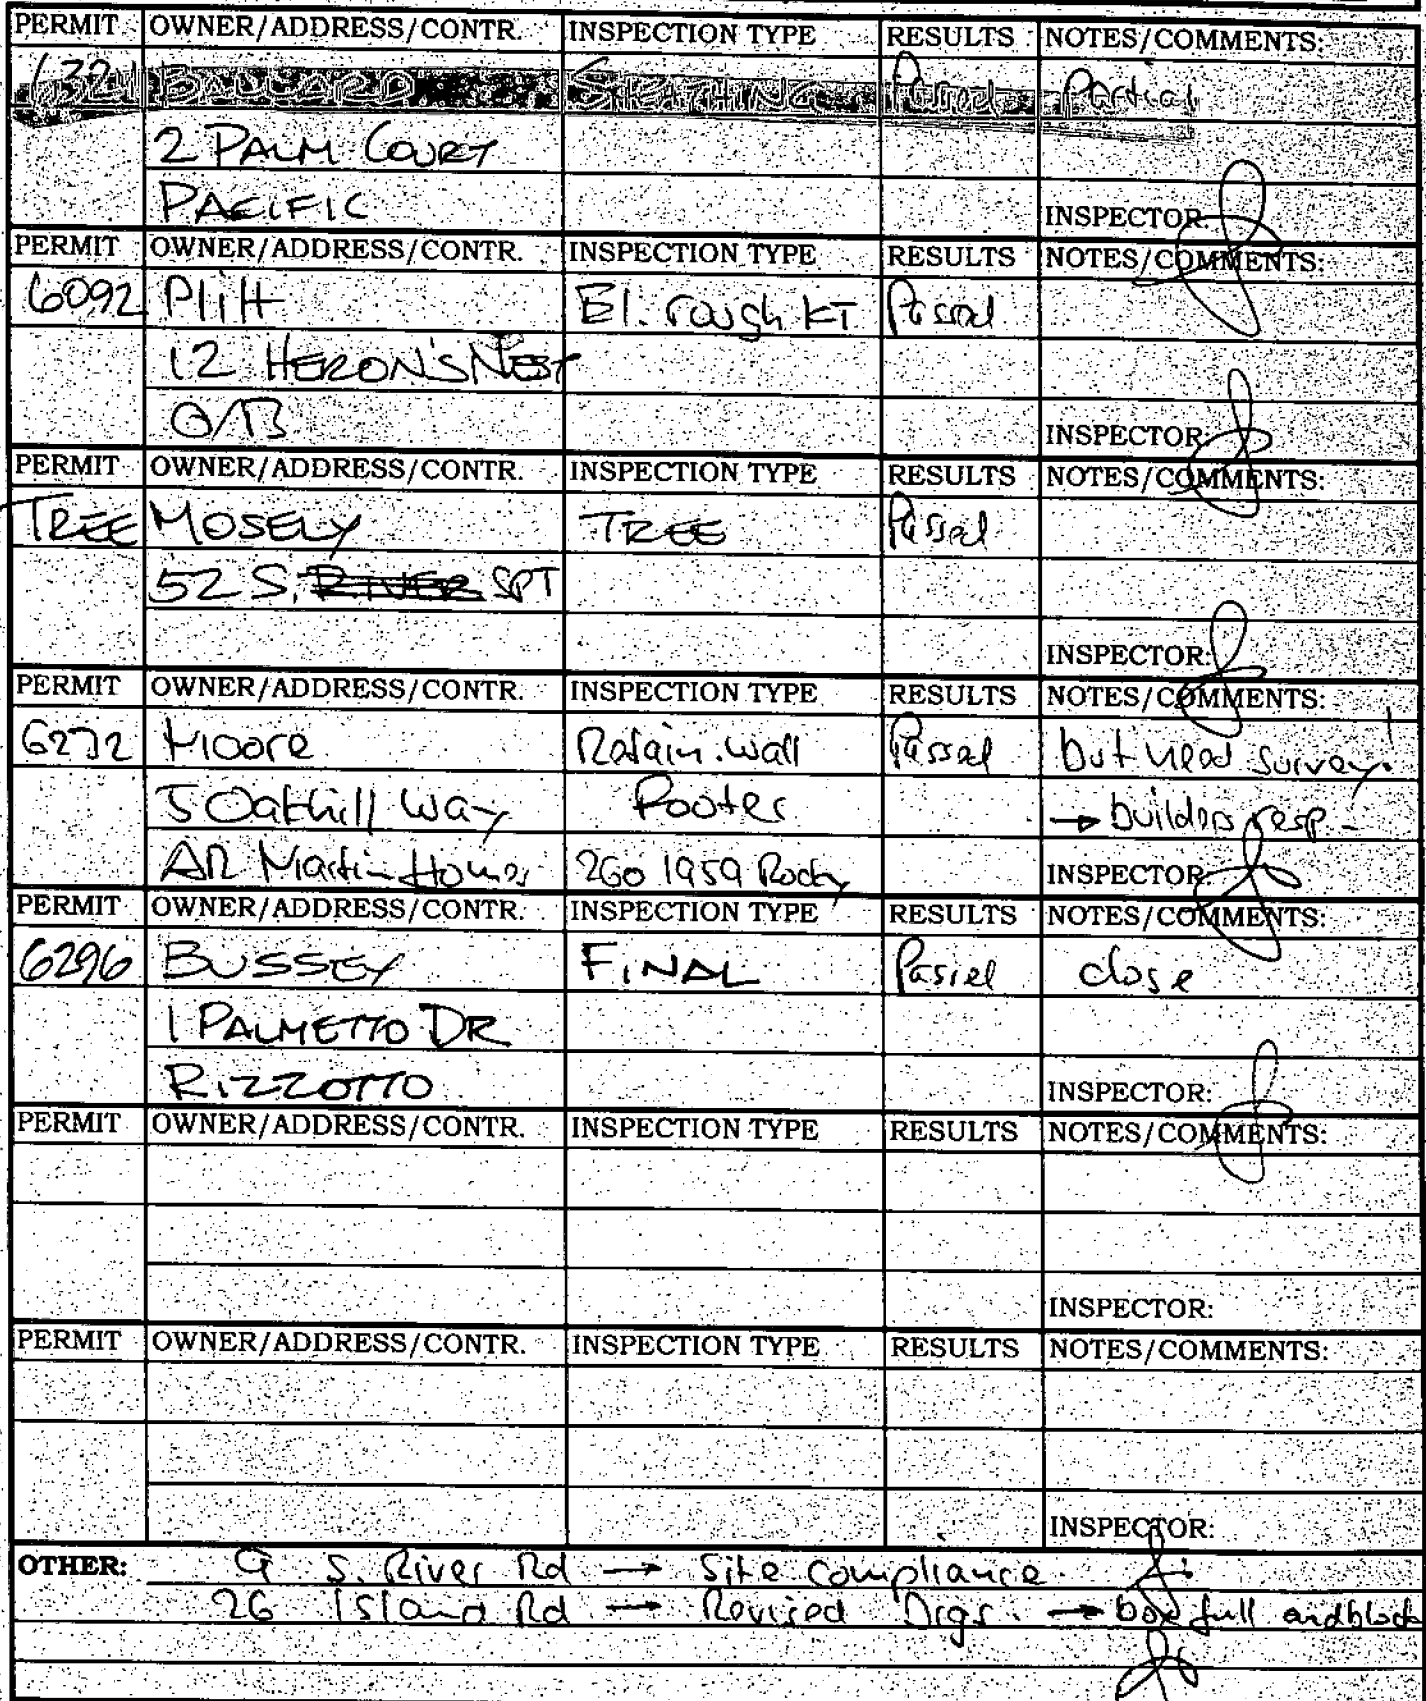 PERMIT OWNER/ADDRESS/CONTR. INSPECTION TYPE RESULTS NOTES/COMMENTS:
BALLARD SHEATHING Passed Partial
2 PALM COURT
PACIFIC INSPECTOR:
PERMIT OWNER/ADDRESS/CONTR. INSPECTION TYPE RESULTS NOTES/COMMENTS:
6092 El. rough KT Passed
12 HERON'S NEST
O/B INSPECTOR:
PERMIT OWNER/ADDRESS/CONTR. INSPECTION TYPE RESULTS NOTES/COMMENTS:
TREE MOSELY TREE Passed
52 S. RIVER SPT
INSPECTOR:
PERMIT OWNER/ADDRESS/CONTR. INSPECTION TYPE RESULTS NOTES/COMMENTS:
6232 Moore Retain. wall Passed but need survey!
5 Oakhill Way Footer → builders resp.
AR Martin Homes 260 1959 Rocky INSPECTOR:
PERMIT OWNER/ADDRESS/CONTR. INSPECTION TYPE RESULTS NOTES/COMMENTS:
6296 BUSSEY FINAL Passed close
1 PALMETTO DR
RIZZOTTO INSPECTOR:
PERMIT OWNER/ADDRESS/CONTR. INSPECTION TYPE RESULTS NOTES/COMMENTS:
INSPECTOR:
PERMIT OWNER/ADDRESS/CONTR. INSPECTION TYPE RESULTS NOTES/COMMENTS:
INSPECTOR:
OTHER: 9 S. River Rd → Site compliance
26 Island Rd → Revised Drgs. → box full and